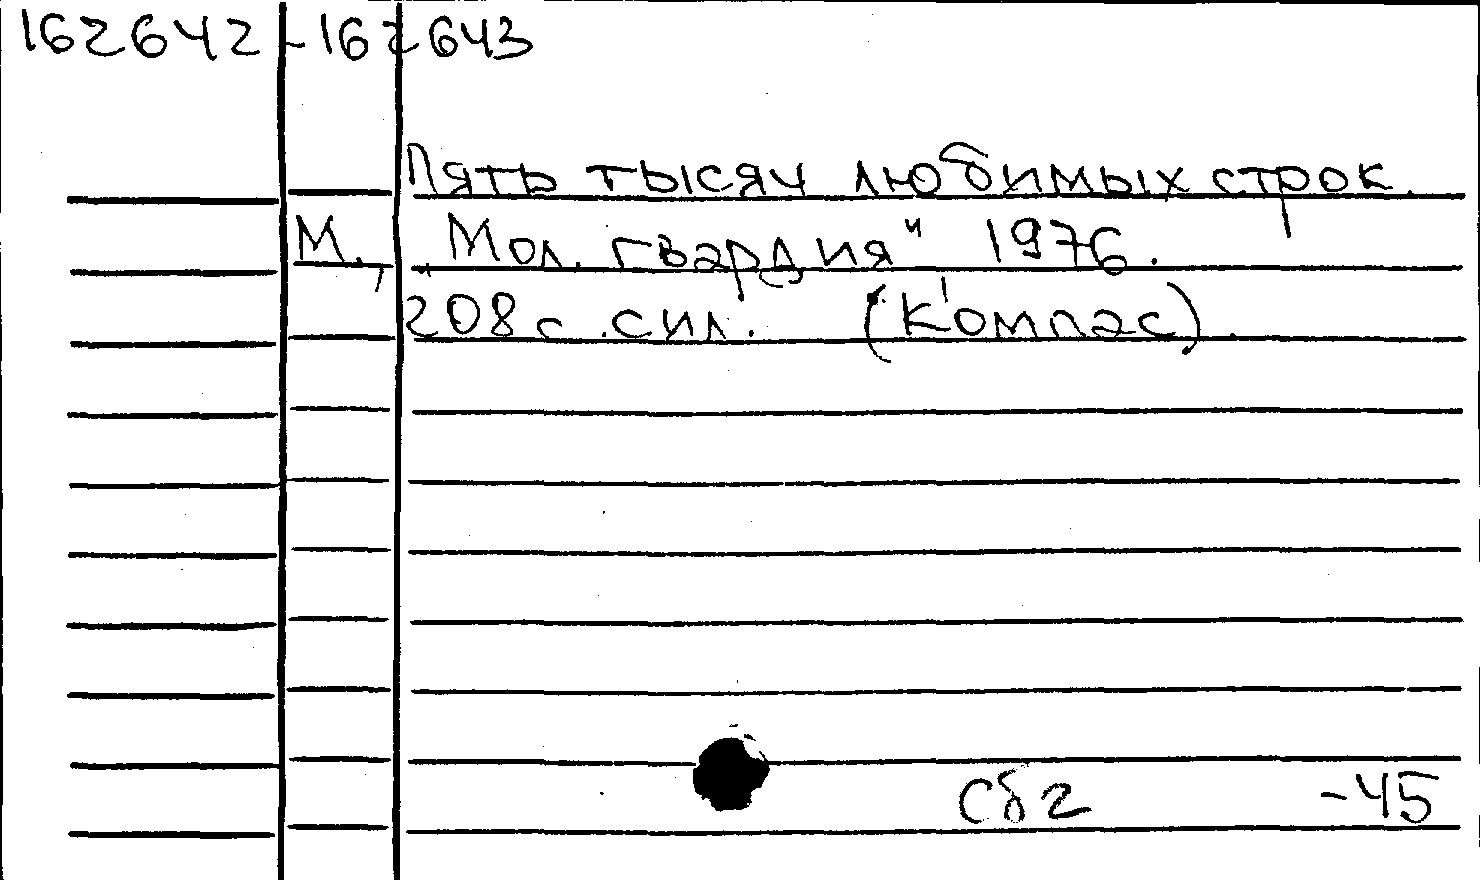 162642-162643
Пять тысяч любимых строк.
М., „Мол. гвардия" 1976.
208 с. с ил. (Компас).
Сб 2 -45